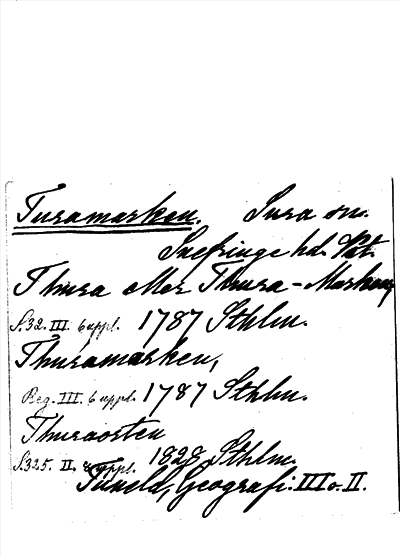 Turamarken. Sura sn.
Snefringe hd. Vstm.
Thura eller Thura-Marken
S. 32. III. 6 uppl. 1787 Sthlm.
Thuramarken,
Reg. III. 6 uppl. 1787 Sthlm.
Thuraosten
S. 325. II. 8 uppl. 1828 Sthlm.
Tuneld, Geografi: III o. II.